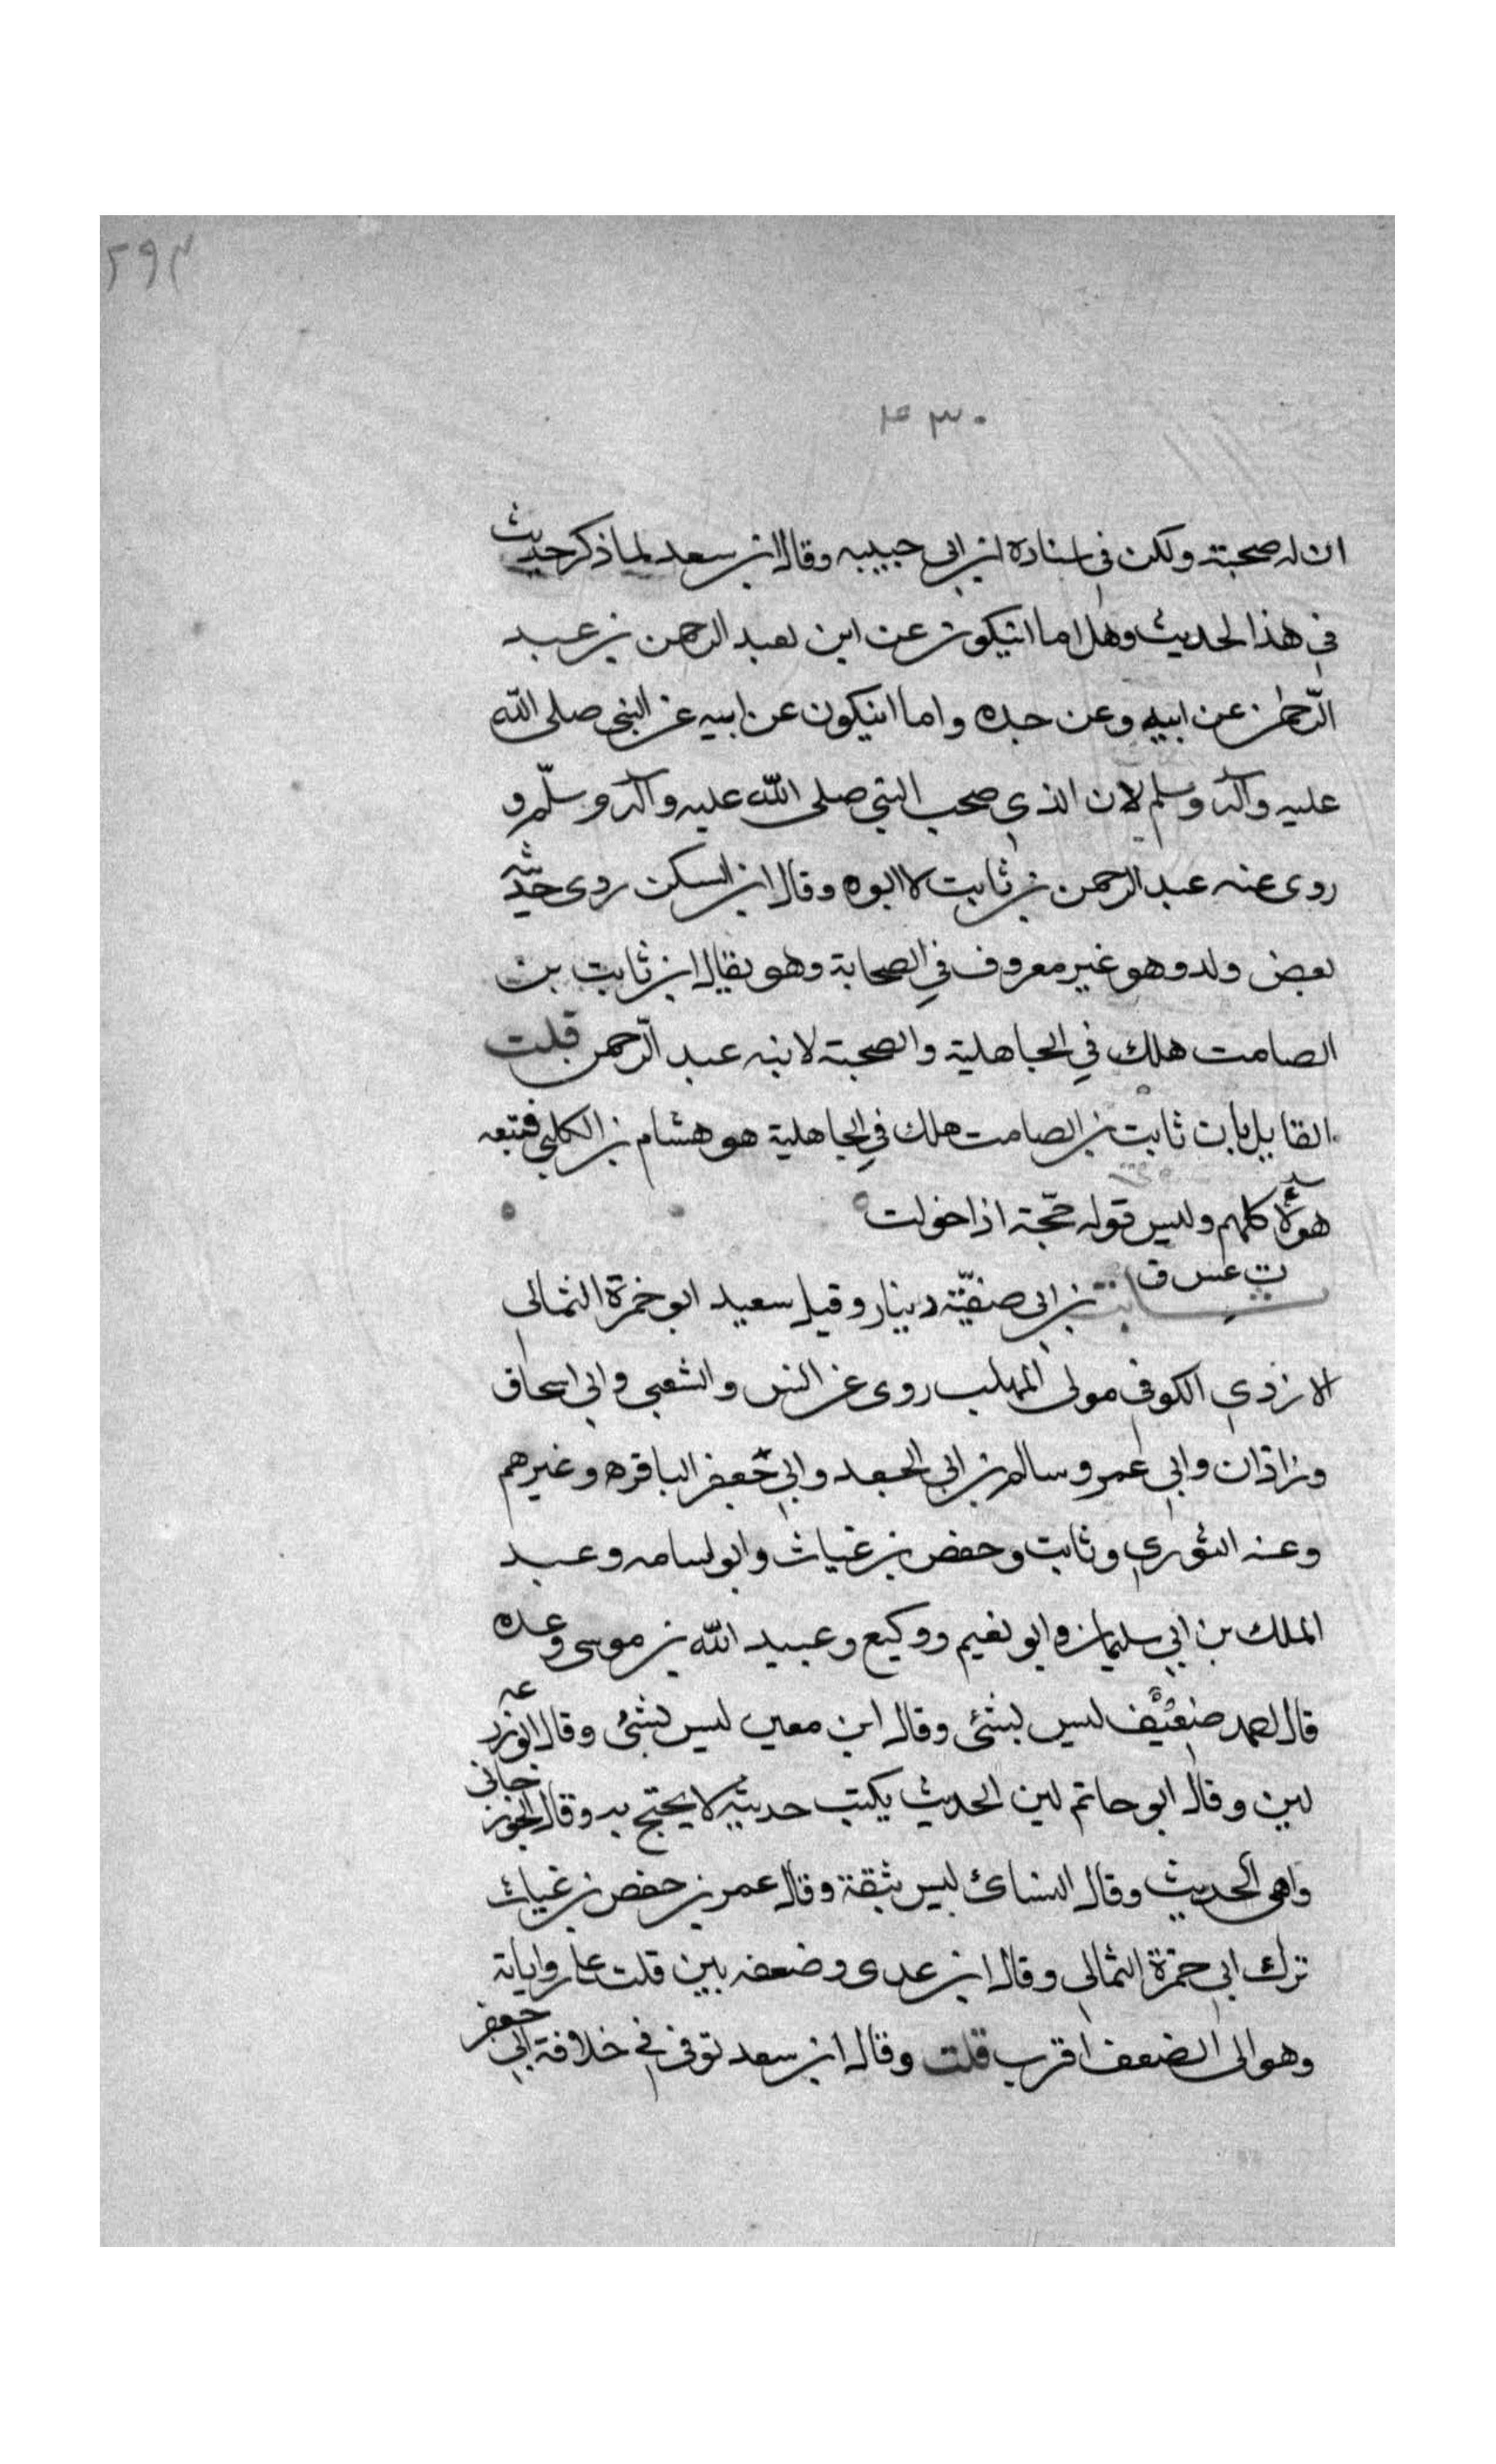 ٢٩٣
٤٣٠
ان له صحبة ولكن في اسناده ابن ابي حبيبه وقال ابن سعد لما ذكر حديث
في هذا الحديث وهل اما انيكون عن ابن لعبد الرحمن بن عبد
الرّحمن عن ابيه وعن جده واما انيكون عن ابيه عن النبي صلى الله
عليه وآله وسلم لان الذي صحب النبي صلى الله عليه وآله وسلّم و
روى عنه عبد الرحمن بن ثابت لا ابوه وقال ابن السكن روى حديثه
بعض ولده وهو غير معروف في الصحابة وهو يقال ابن ثابت بن
الصامت هلك في الجاهلية والصحبة لابنه عبد الرّحمن قلت
القايل بان ثابت بن الصامت هلك في الجاهلية هو هشام بن الكلبي فتبعه
هؤلاء كلهم وليس قوله حجّة اذا خولت
ت عس ق
ثابت بن ابي صفيّة دينار وقيل سعيد ابو حمزة الثمالي
الازدي الكوفي مولى المهلب روى عن انس والشعبي وابي اسحاق
وزاذان وابي عمر وسالم بن ابي الجعد وابي جعفر الباقره وغيرهم
وعنه الثوري وثابت وحفص بن غياث وابو اسامه وعبد
الملك بن ابي سليمان وابو نعيم ووكيع وعبيد الله بن موسى وعده
قال احمد ضعيف ليس بشئ وقال ابن معين ليس بشئ وقال ابو زرعه
لين وقال ابو حاتم لين الحديث يكتب حديثه لا يحتج به وقال الجوزجاني
واهى الحديث وقال النسائ ليس بثقة وقال عمر بن حفص بن غياث
ترك ابي حمزة الثمالي وقال ابن عدى وضعفه بين قلت عا روايات
وهو الى الضعف اقرب قلت وقال ابن سعد توفى في خلافة ابي جعفر